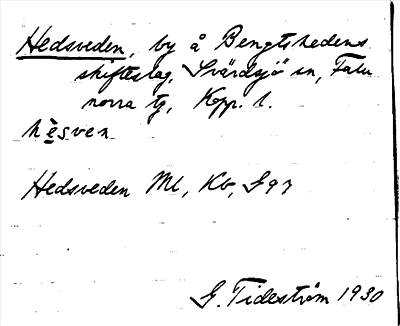 Hedsveden, by å Bengtshedens
skifteslag, Svärdsjö sn, Falu
norra tg, Kopp. l.
hèsven
Hedsveden Ml, Kb, S 97
G. Tideström 1930